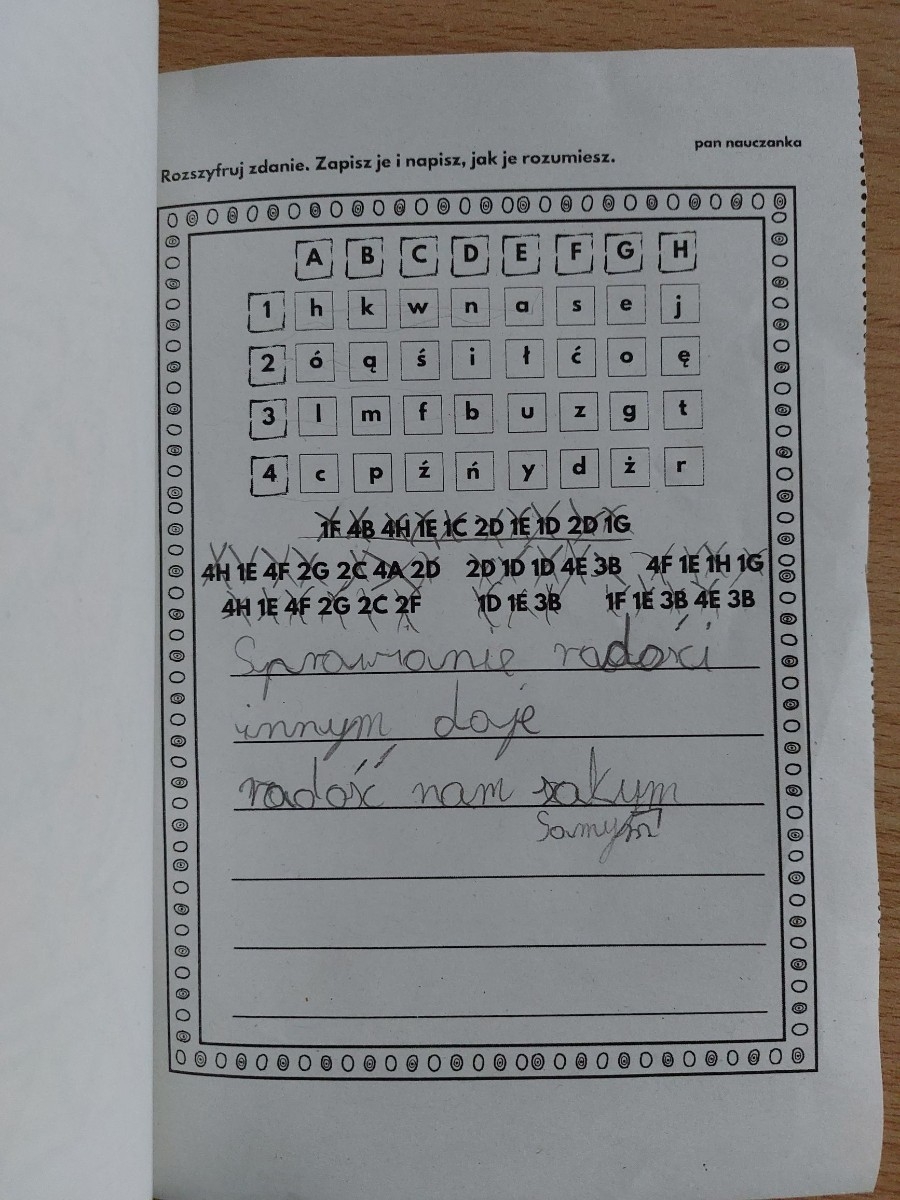 pan nauczanka
Rozszyfruj zdanie. Zapisz je i napisz, jak je rozumiesz.
A B C D E F G H
1 h k w n a s e j
2 ó ą ś i ł ć o ę
3 l m f b u z g t
4 c p ź ń y d ż r
1F 4B 4H 1E 1C 2D 1E 1D 2D 1G
4H 1E 4F 2G 2C 4A 2D 2D 1D 1D 4E 3B 4F 1E 1H 1G
4H 1E 4F 2G 2C 2F 1D 1E 3B 1F 1E 3B 4E 3B
Sprawianie radości
innym daje
radość nam sakym
Samym